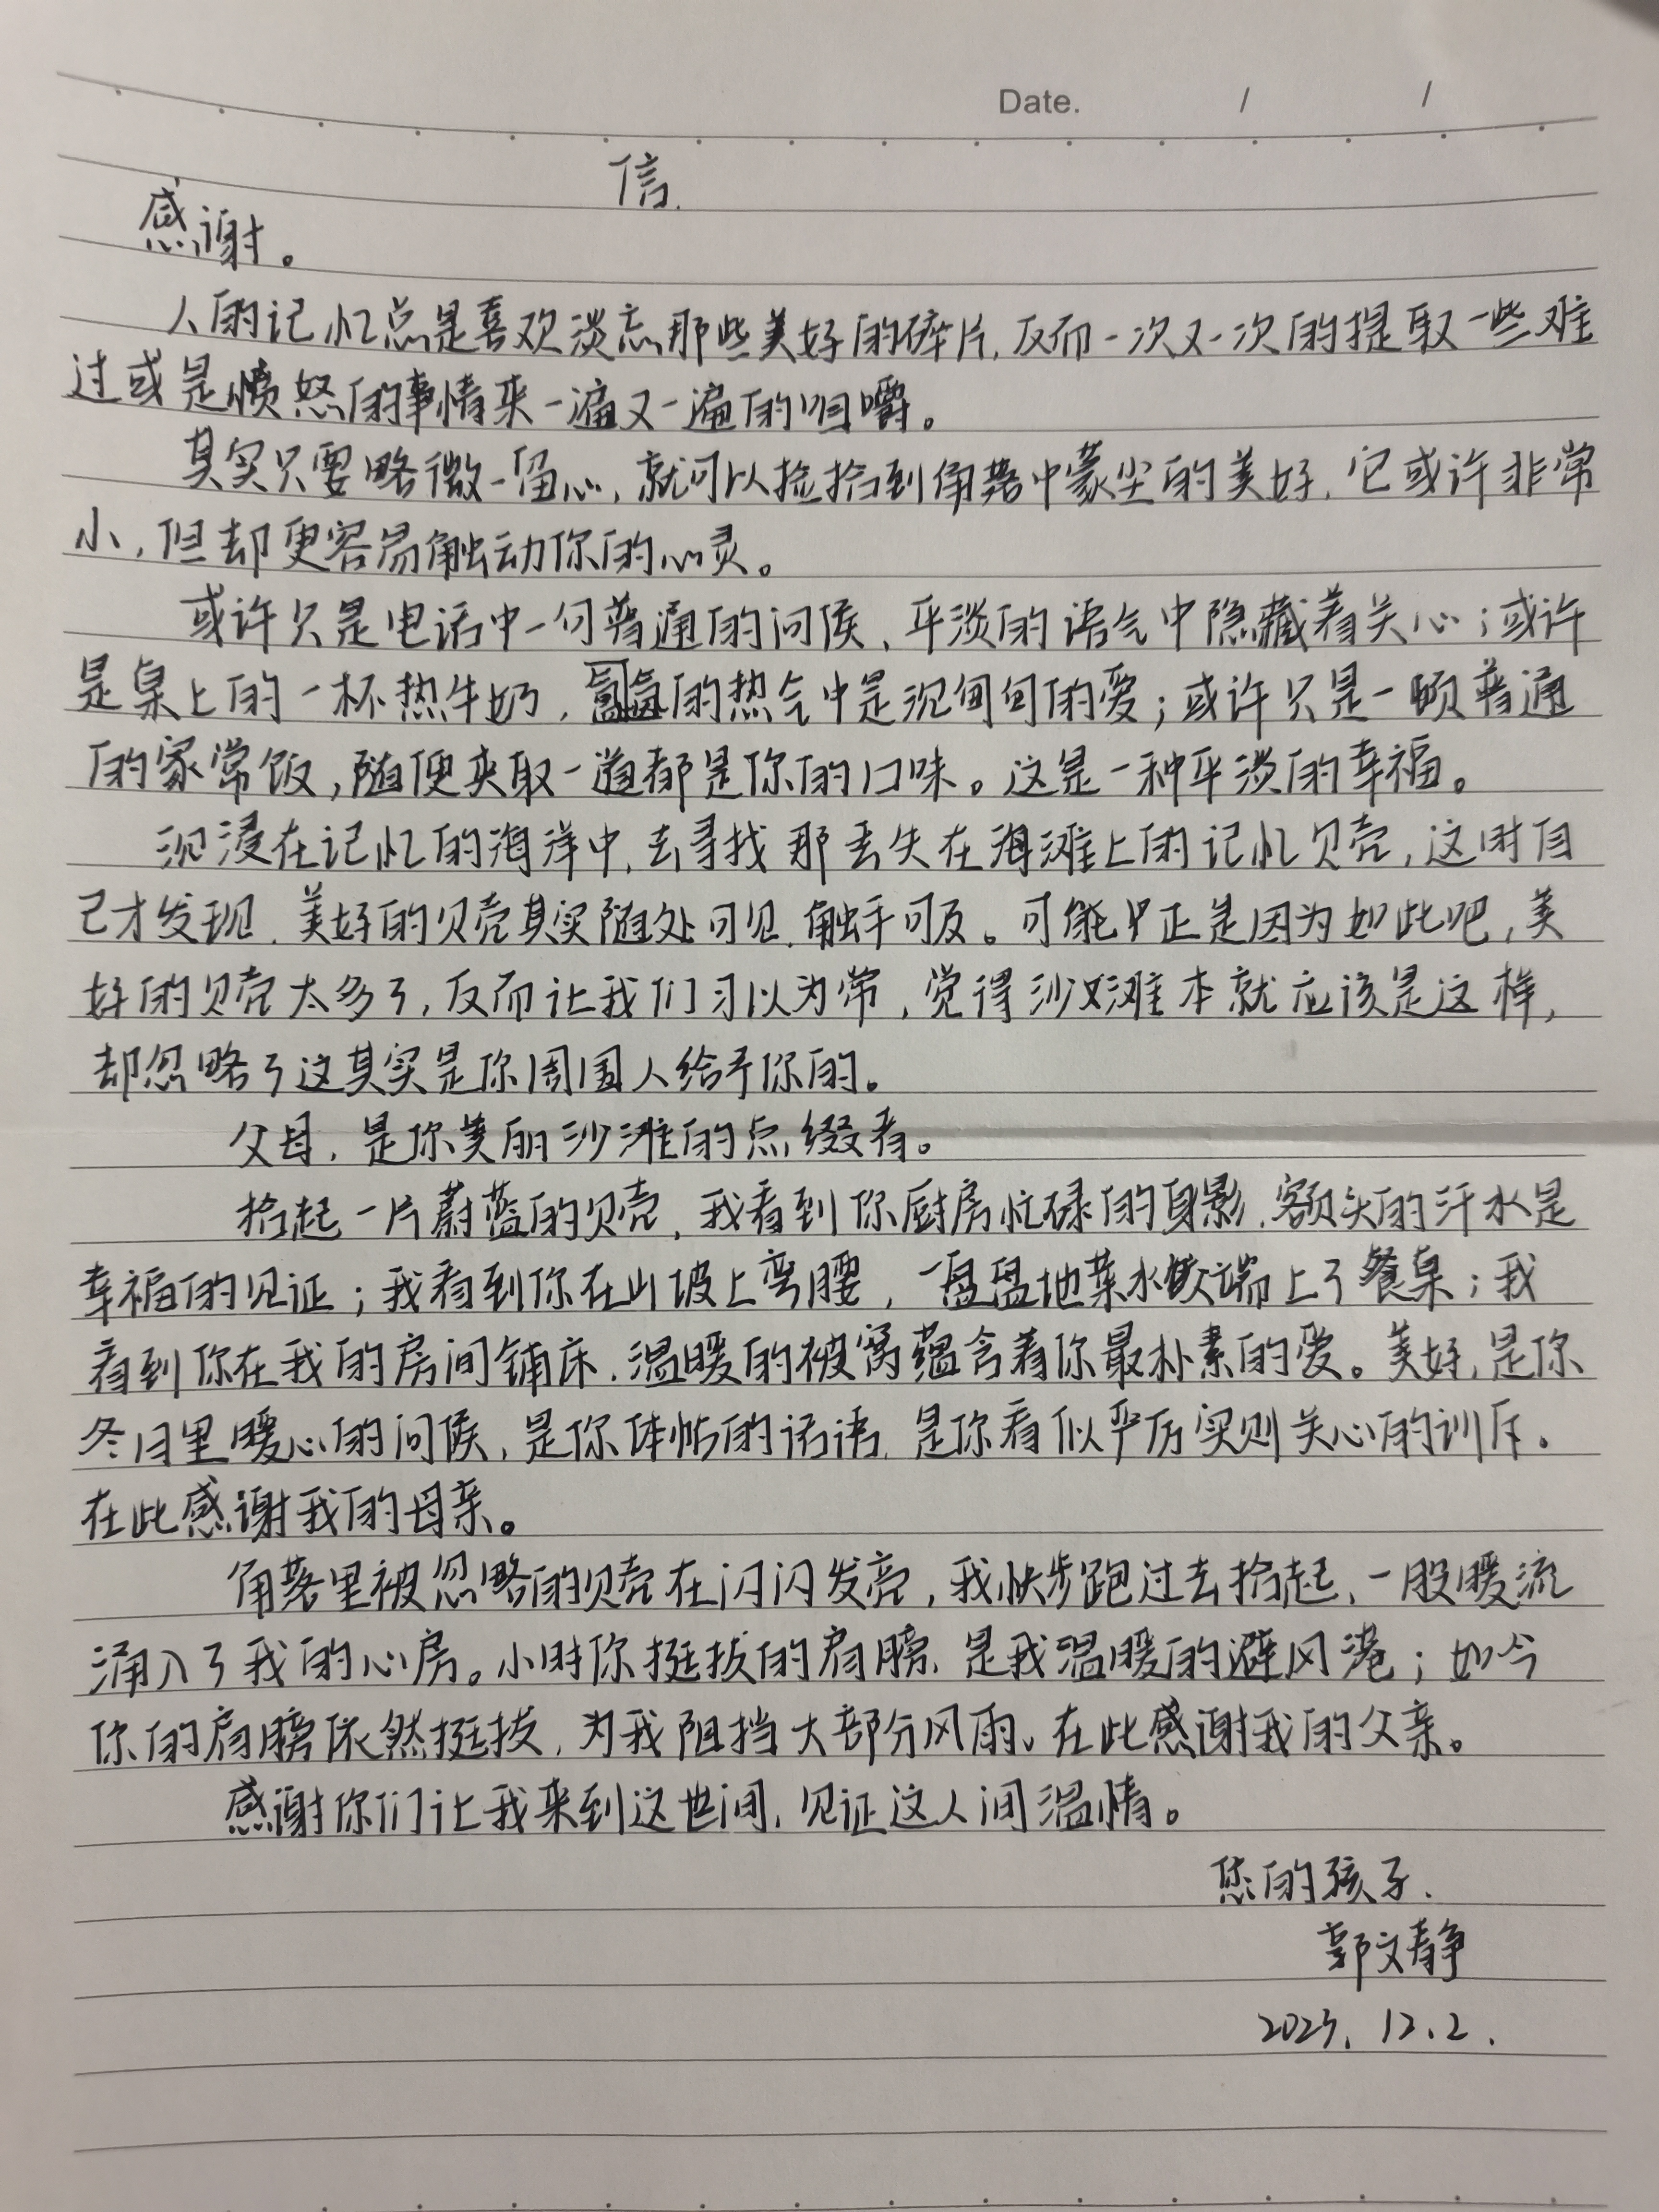 Date. / /
信.
感谢。
人的记忆总是喜欢淡忘那些美好的碎片,反而一次又一次的提取一些难
过或是愤怒的事情来一遍又一遍的咀嚼。
其实只要略微一留心,就可以捡拾到角落中蒙尘的美好,它或许非常
小,但却更容易触动你的心灵。
或许只是电话中一句普通的问候、平淡的语气中隐藏着关心;或许
是桌上的一杯热牛奶,氤氲的热气中是沉甸甸的爱;或许只是一顿普通
的家常饭,随便夹取一道都是你的口味。这是一种平淡的幸福。
沉浸在记忆的海洋中,去寻找那丢失在海滩上的记忆贝壳,这时自
己才发现,美好的贝壳其实随处可见,触手可及。可能也正是因为如此吧,美
好的贝壳太多了,反而让我们习以为常,觉得沙滩本就应该是这样,
却忽略了这其实是你周围人给予你的。
父母,是你美丽沙滩的点缀者。
拾起一片蔚蓝的贝壳,我看到你厨房忙碌的身影,额头的汗水是
幸福的见证;我看到你在山坡上弯腰,一盘盘地菜水饺端上了餐桌;我
看到你在我的房间铺床,温暖的被窝蕴含着你最朴素的爱。美好,是你
冬日里暖心的问候,是你体帖的话语,是你看似严厉实则关心的训斥。
在此感谢我的母亲。
角落里被忽略的贝壳在闪闪发亮,我快步跑过去拾起,一股暖流
涌入了我的心房。小时你挺拔的肩膀,是我温暖的避风港;如今
你的肩膀依然挺拔,为我阻挡大部分风雨。在此感谢我的父亲。
感谢你们让我来到这世间,见证这人间温情。
您的孩子.
郭文静
2023.12.2.